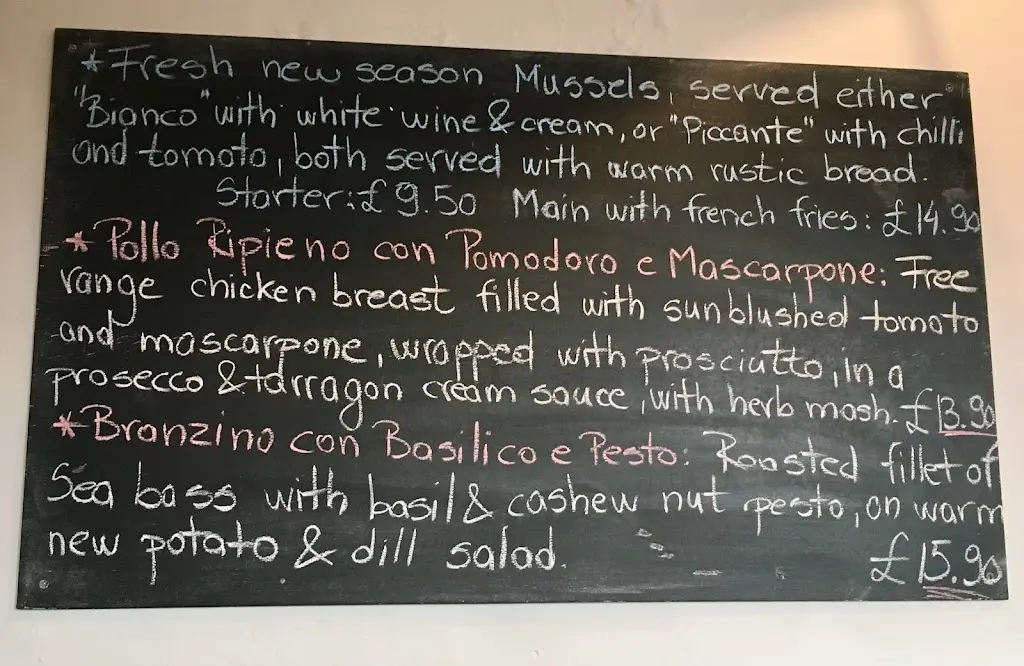 *Fresh new season Mussels, served either
"Bianco" with white wine & cream, or "Piccante" with chilli
and tomato, both served with warm rustic bread.
Starter: £9.50 Main with french fries: £14.90
*Pollo Ripieno con Pomodoro e Mascarpone: Free
range chicken breast filled with sunblushed tomato
and mascarpone, wrapped with prosciutto, in a
prosecco & tarragon cream sauce, with herb mash. £13.90
*Branzino con Basilico e Pesto: Roasted fillet of
Sea bass with basil & cashew nut pesto, on warm
new potato & dill salad. £15.90